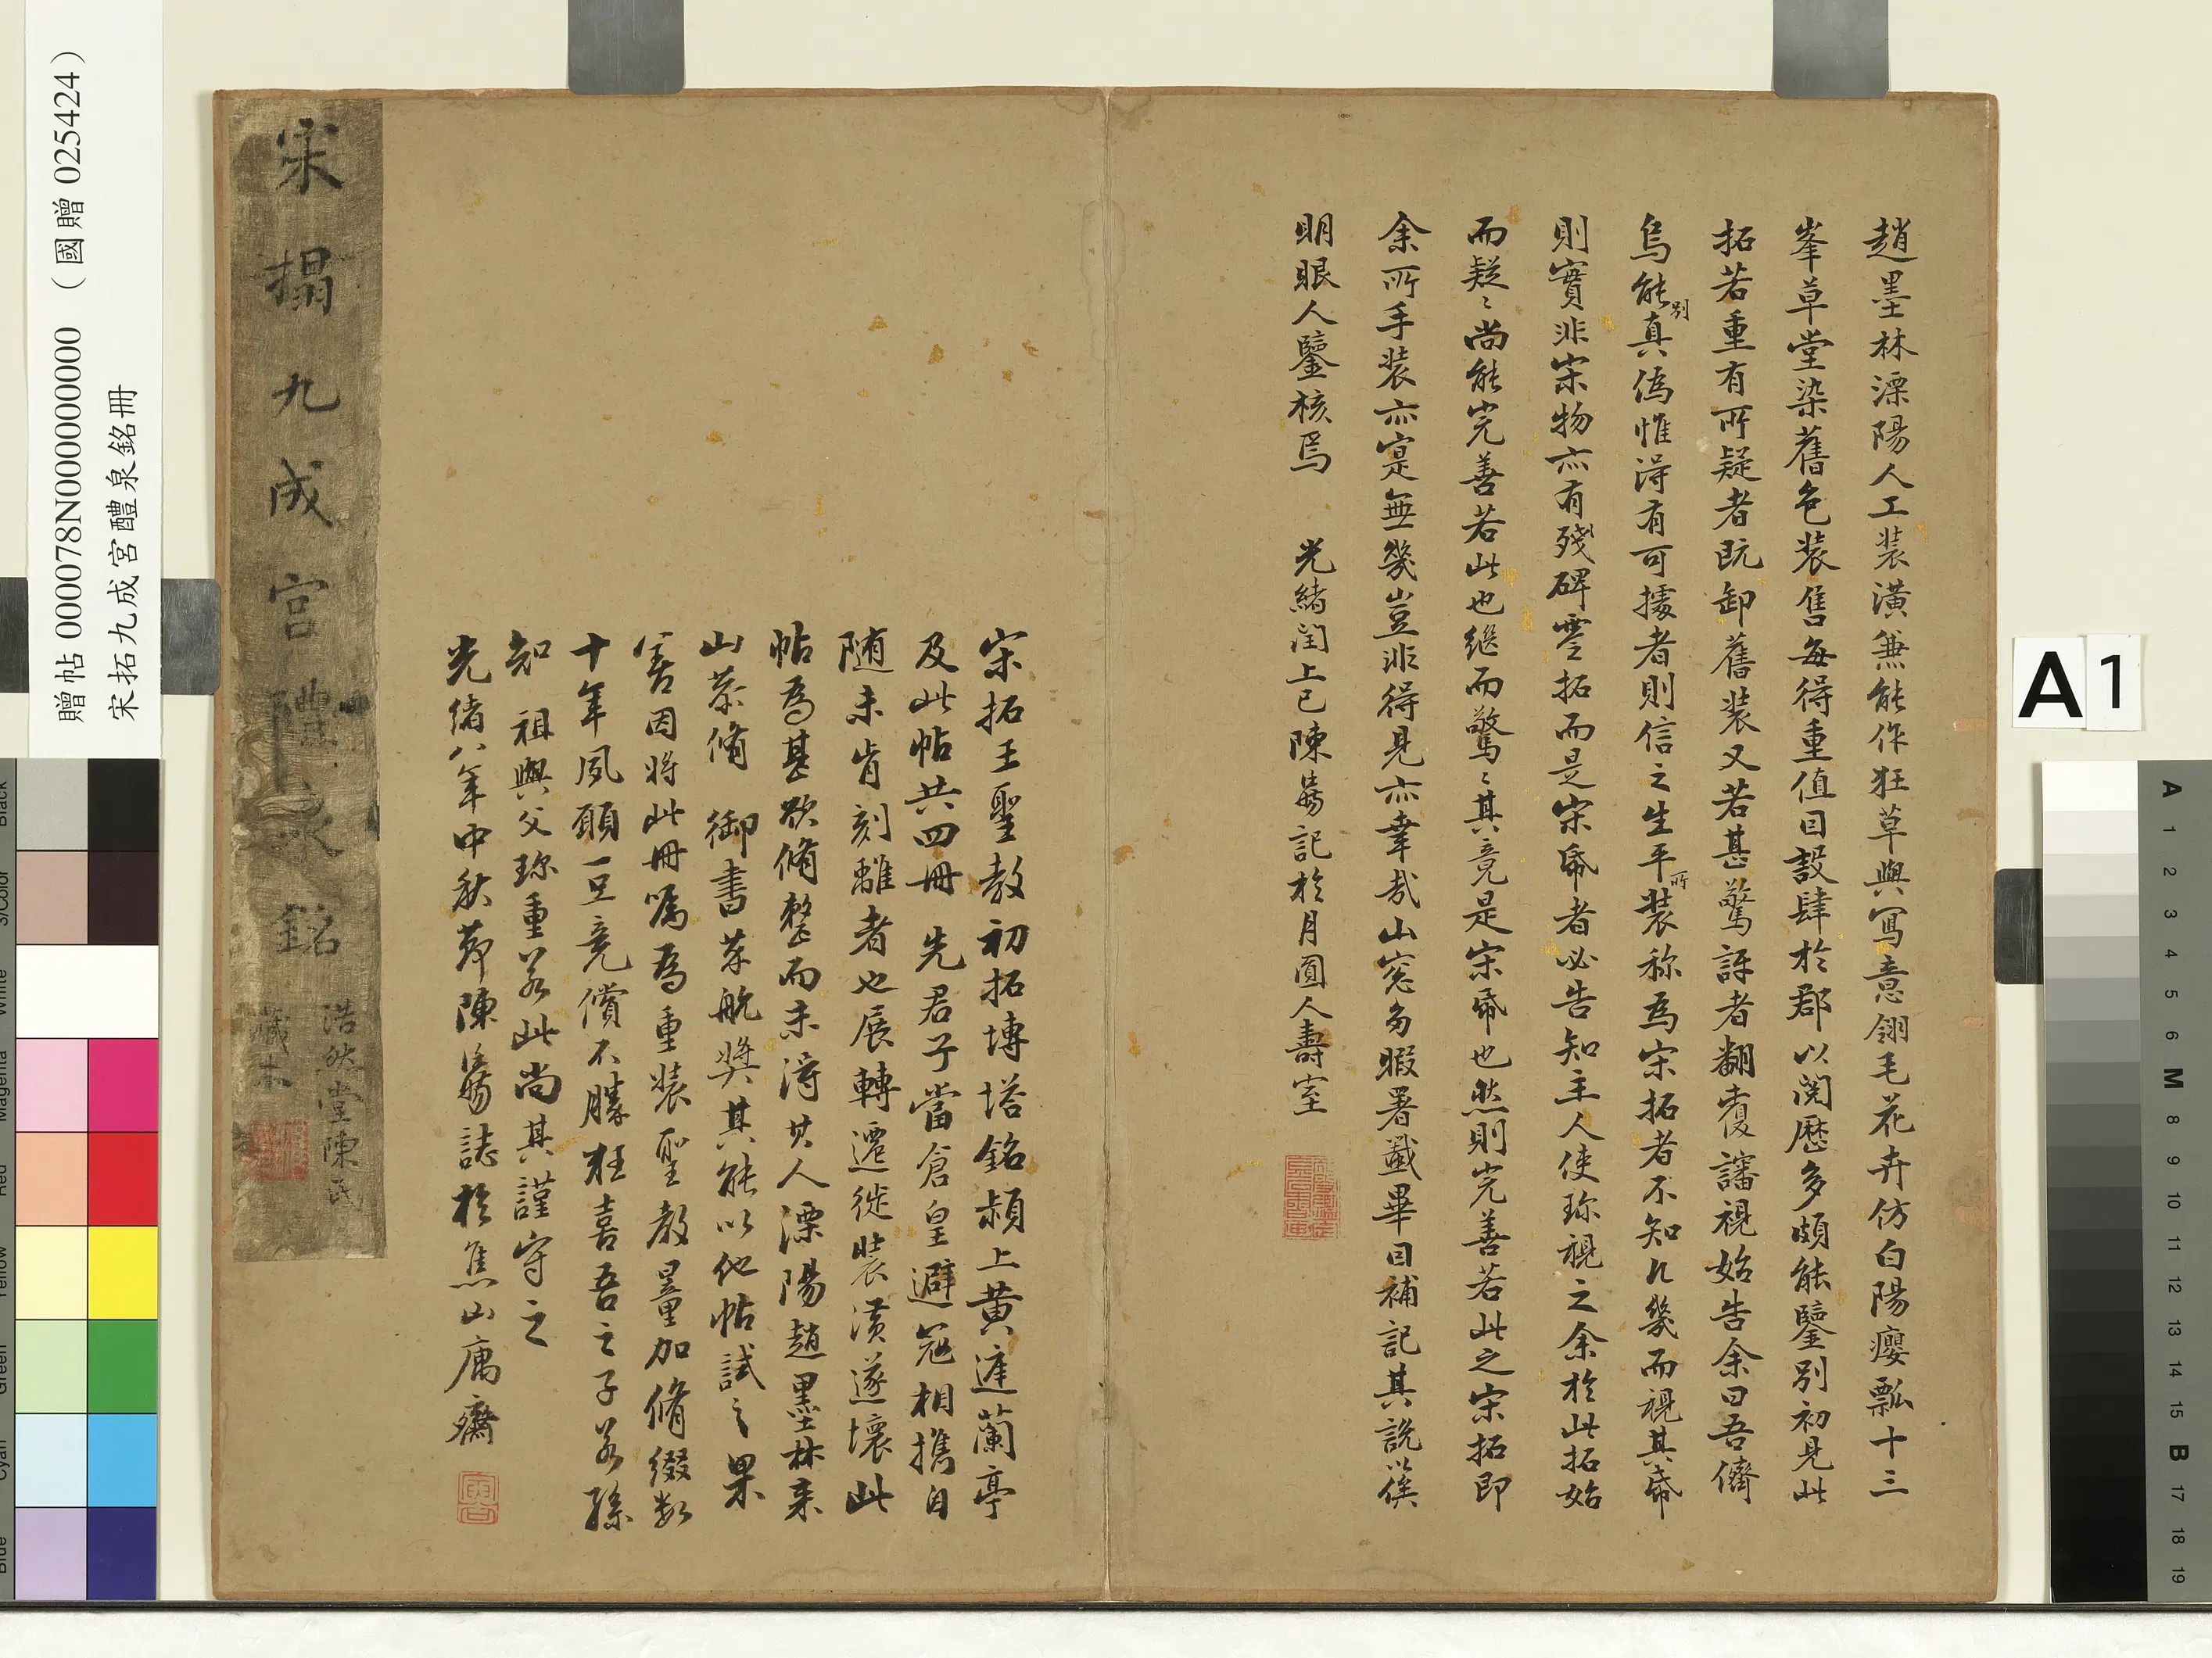 趙墨林溧陽人工裝潢兼能作狂草與寫意翎毛花卉仿白陽癭瓢十三
峯草堂染舊色裝售每得重值目設肆於郡以閱歷多頗能鑒別初見此
拓若重有所疑者既卸舊裝又若甚驚訝者翻覆諦視始告余曰吾儕
烏能別真偽惟淂有可據者則信之生平所裝称為宋拓者不知凡幾而視其帋
則實非宋物亦有殘碑零拓而是宋帋者必告知主人使珎視之余於此拓始
而疑〻尚能完善若此也继而驚〻其竟是宋帋也然則完善若此之宋拓即
余所手裝亦寔無幾豈非得見亦幸哉山窓多暇署籤畢目補記其說以俟
明眼人鑒核焉 光緒閏上巳陳 記於月圓人壽室
宋拓王聖教初拓塼塔銘潁上黃庭蘭亭
及此帖共四冊 先君子當倉皇避寇相攜自
随未肯刻離者也展轉遷徙裝潢遂壞此
帖為甚欲脩整而未淂其人溧陽趙墨林來
山恭脩 御書萃舩獎其能以他帖試之果
善因將此冊囑為重裝聖教量加脩綴数
十年夙願一旦竟償不勝狂喜吾之子若孫
知 祖與父珎重若此尚其謹守之
光緒八年中秋節陳 誌於焦山庽齋
宋搨九成宮醴泉銘
浩然堂陳氏
藏本
贈帖 000078N000000000 （國贈 025424）
宋拓九成宮醴泉銘冊
A 1
Black
3/Color
White
Magenta
Red
Yellow
Green
Cyan
Blue
A 1 2 3 4 5 6 M 8 9 10 11 12 13 14 15 B 17 18 19